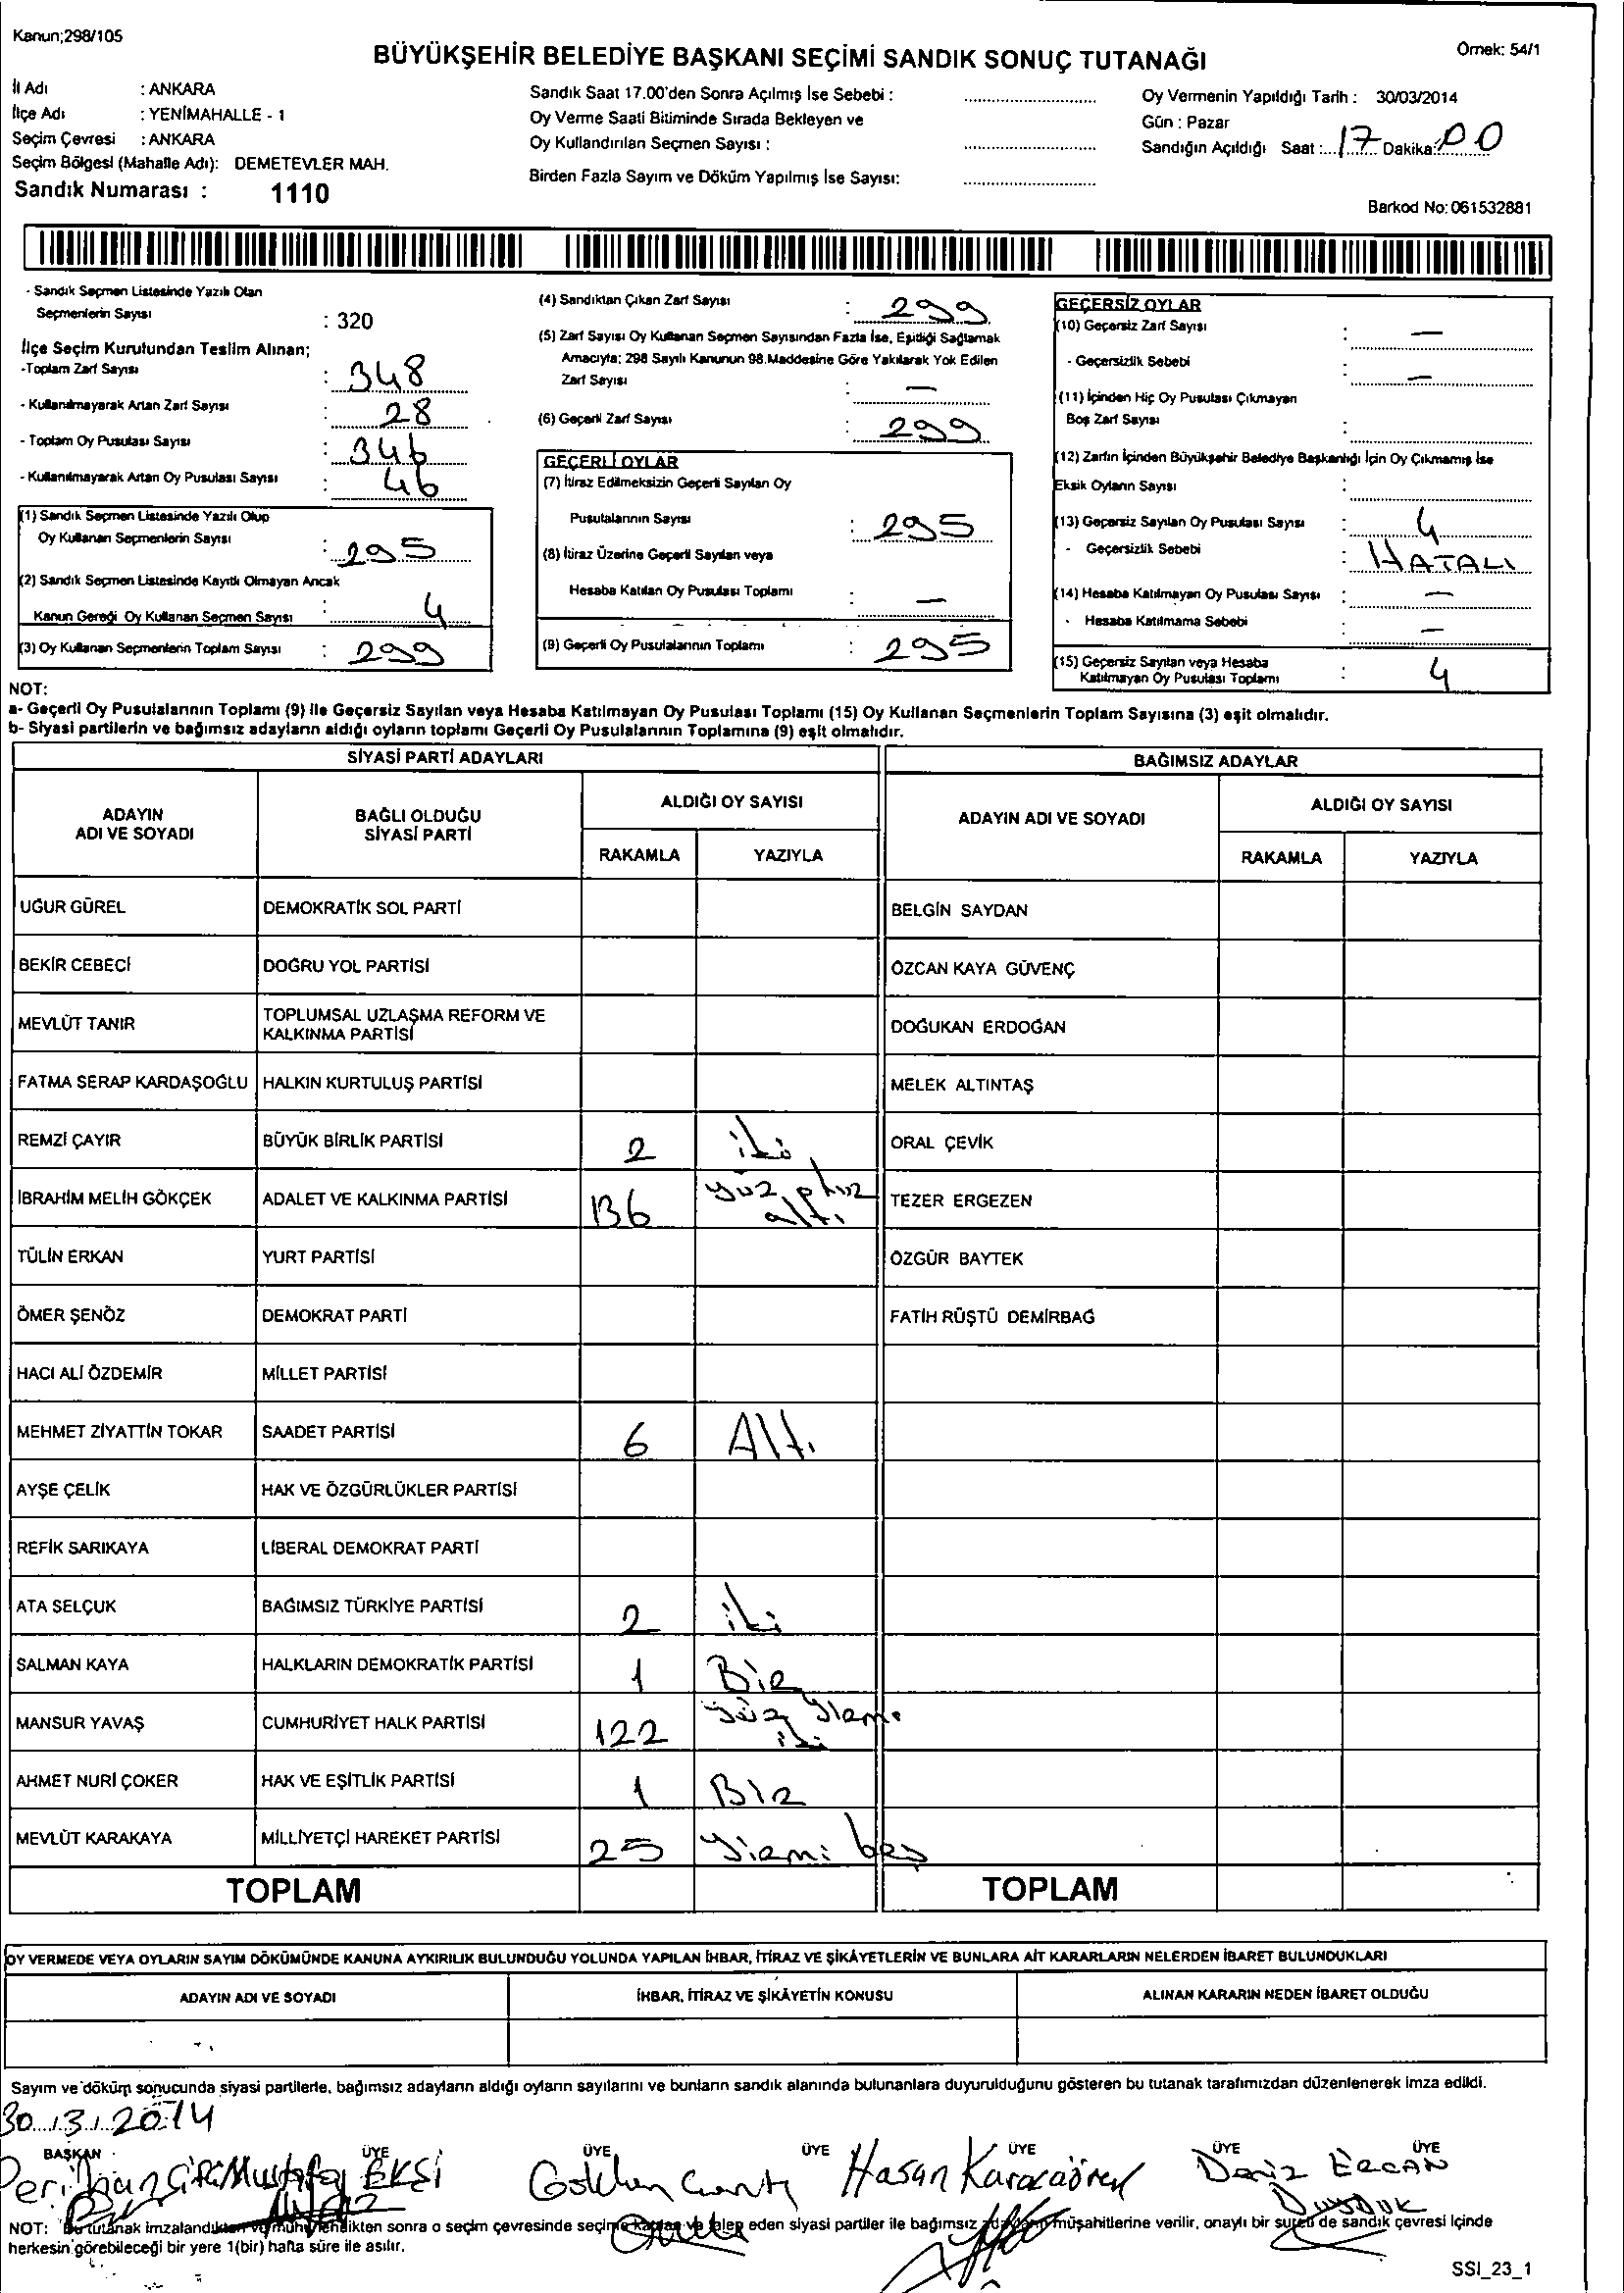 Kanun;298/105
Örnek: 54/1
BÜYÜKŞEHİR BELEDİYE BAŞKANI SEÇİMİ SANDIK SONUÇ TUTANAĞI
İl Adı : ANKARA
İlçe Adı : YENİMAHALLE - 1
Seçim Çevresi : ANKARA
Seçim Bölgesi (Mahalle Adı): DEMETEVLER MAH.
Sandık Numarası : 1110
Sandık Saat 17.00'den Sonra Açılmış İse Sebebi : ..............................
Oy Verme Saati Bitiminde Sırada Bekleyen ve
Oy Kullandırılan Seçmen Sayısı : ..............................
Birden Fazla Sayım ve Döküm Yapılmış İse Sayısı: ..............................
Oy Vermenin Yapıldığı Tarih : 30/03/2014
Gün : Pazar
Sandığın Açıldığı Saat : 17 Dakika: 00
Barkod No: 061532881
- Sandık Seçmen Listesinde Yazılı Olan
Seçmenlerin Sayısı : 320
İlçe Seçim Kurulundan Teslim Alınan;
-Toplam Zarf Sayısı : 348
- Kullanılmayarak Artan Zarf Sayısı : 28
- Toplam Oy Pusulası Sayısı : 346
- Kullanılmayarak Artan Oy Pusulası Sayısı : 46
(1) Sandık Seçmen Listesinde Yazılı Olup
Oy Kullanan Seçmenlerin Sayısı : 295
(2) Sandık Seçmen Listesinde Kayıtlı Olmayan Ancak
Kanun Gereği Oy Kullanan Seçmen Sayısı : 4
(3) Oy Kullanan Seçmenlerin Toplam Sayısı : 299
(4) Sandıktan Çıkan Zarf Sayısı : 299
(5) Zarf Sayısı Oy Kullanan Seçmen Sayısından Fazla İse, Eşitliği Sağlamak
Amacıyla; 298 Sayılı Kanunun 98.Maddesine Göre Yakılarak Yok Edilen
Zarf Sayısı : —
(6) Geçerli Zarf Sayısı : 299
GEÇERLİ OYLAR
(7) İtiraz Edilmeksizin Geçerli Sayılan Oy
Pusulalarının Sayısı : 295
(8) İtiraz Üzerine Geçerli Sayılan veya
Hesaba Katılan Oy Pusulası Toplamı : —
(9) Geçerli Oy Pusulalarının Toplamı : 295
GEÇERSİZ OYLAR
(10) Geçersiz Zarf Sayısı : —
- Geçersizlik Sebebi : —
(11) İçinden Hiç Oy Pusulası Çıkmayan
Boş Zarf Sayısı :
(12) Zarfın İçinden Büyükşehir Belediye Başkanlığı İçin Oy Çıkmamış İse
Eksik Oyların Sayısı :
(13) Geçersiz Sayılan Oy Pusulası Sayısı : 4
- Geçersizlik Sebebi : HATALI
(14) Hesaba Katılmayan Oy Pusulası Sayısı : —
- Hesaba Katılmama Sebebi : —
(15) Geçersiz Sayılan veya Hesaba
Katılmayan Oy Pusulası Toplamı : 4
NOT:
a- Geçerli Oy Pusulalarının Toplamı (9) ile Geçersiz Sayılan veya Hesaba Katılmayan Oy Pusulası Toplamı (15) Oy Kullanan Seçmenlerin Toplam Sayısına (3) eşit olmalıdır.
b- Siyasi partilerin ve bağımsız adayların aldığı oyların toplamı Geçerli Oy Pusulalarının Toplamına (9) eşit olmalıdır.
SİYASİ PARTİ ADAYLARI
ADAYIN ADI VE SOYADI
BAĞLI OLDUĞU SİYASİ PARTİ
ALDIĞI OY SAYISI
RAKAMLA YAZIYLA
UĞUR GÜREL DEMOKRATİK SOL PARTİ
BEKİR CEBECİ DOĞRU YOL PARTİSİ
MEVLÜT TANIR TOPLUMSAL UZLAŞMA REFORM VE
KALKINMA PARTİSİ
FATMA SERAP KARDAŞOĞLU HALKIN KURTULUŞ PARTİSİ
REMZİ ÇAYIR BÜYÜK BİRLİK PARTİSİ 2 iki
İBRAHİM MELİH GÖKÇEK ADALET VE KALKINMA PARTİSİ 136 yüz otuz altı
TÜLİN ERKAN YURT PARTİSİ
ÖMER ŞENÖZ DEMOKRAT PARTİ
HACI ALİ ÖZDEMİR MİLLET PARTİSİ
MEHMET ZİYATTİN TOKAR SAADET PARTİSİ 6 Altı
AYŞE ÇELİK HAK VE ÖZGÜRLÜKLER PARTİSİ
REFİK SARIKAYA LİBERAL DEMOKRAT PARTİ
ATA SELÇUK BAĞIMSIZ TÜRKİYE PARTİSİ 2 iki
SALMAN KAYA HALKLARIN DEMOKRATİK PARTİSİ 1 Bir
MANSUR YAVAŞ CUMHURİYET HALK PARTİSİ 122 yüz yirmi iki
AHMET NURİ ÇOKER HAK VE EŞİTLİK PARTİSİ 1 Bir
MEVLÜT KARAKAYA MİLLİYETÇİ HAREKET PARTİSİ 25 Yirmi beş
TOPLAM
BAĞIMSIZ ADAYLAR
ADAYIN ADI VE SOYADI
ALDIĞI OY SAYISI
RAKAMLA YAZIYLA
BELGİN SAYDAN
ÖZCAN KAYA GÜVENÇ
DOĞUKAN ERDOĞAN
MELEK ALTINTAŞ
ORAL ÇEVİK
TEZER ERGEZEN
ÖZGÜR BAYTEK
FATİH RÜŞTÜ DEMİRBAĞ
TOPLAM
OY VERMEDE VEYA OYLARIN SAYIM DÖKÜMÜNDE KANUNA AYKIRILIK BULUNDUĞU YOLUNDA YAPILAN İHBAR, İTİRAZ VE ŞİKÂYETLERİN VE BUNLARA AİT KARARLARIN NELERDEN İBARET BULUNDUKLARI
ADAYIN ADI VE SOYADI
İHBAR, İTİRAZ VE ŞİKÂYETİN KONUSU
ALINAN KARARIN NEDEN İBARET OLDUĞU
Sayım ve döküm sonucunda siyasi partilerle, bağımsız adayların aldığı oyların sayılarını ve bunların sandık alanında bulunanlara duyurulduğunu gösteren bu tutanak tarafımızdan düzenlenerek imza edildi.
30.3.2014
BAŞKAN ÜYE ÜYE ÜYE ÜYE ÜYE ÜYE
Mustafa EKŞİ Hasan Karacaören Deniz ERCAN
NOT: Bu tutanak imzalandıktan ve mühürlendikten sonra o seçim çevresinde seçime katılan ve talep eden siyasi partiler ile bağımsız adayların müşahitlerine verilir, onaylı bir sureti de sandık çevresi içinde
herkesin görebileceği bir yere 1(bir) hafta süre ile asılır.
SSI_23_1